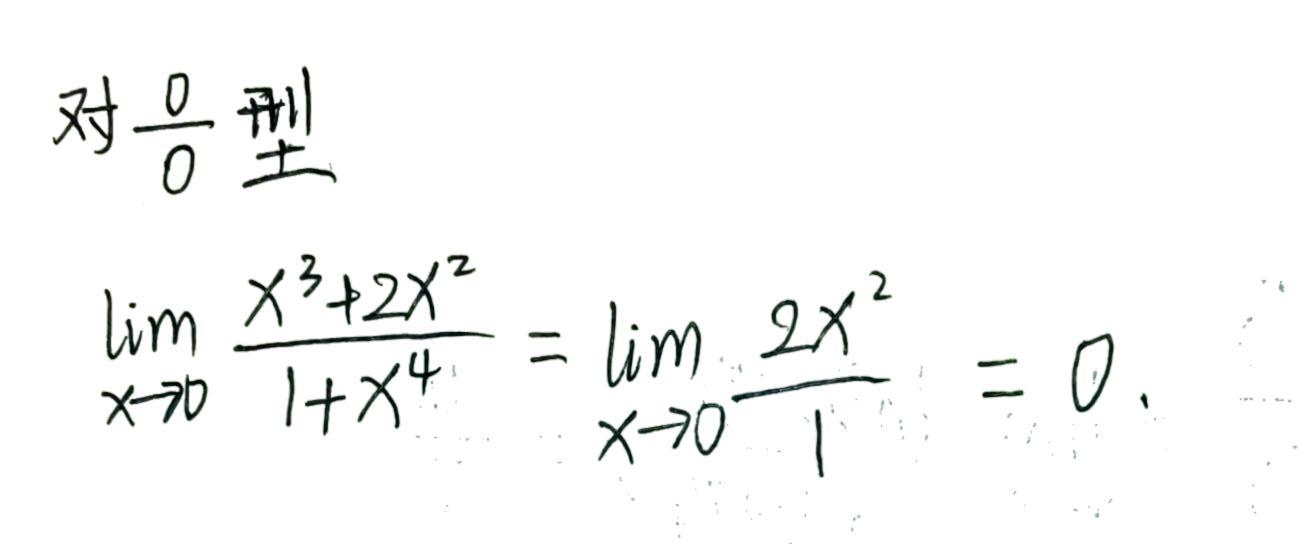 对 $\frac{0}{0}$ 型
$\lim_{x \to 0} \frac{x^3+2x^2}{1+x^4} = \lim_{x \to 0} \frac{2x^2}{1} = 0.$